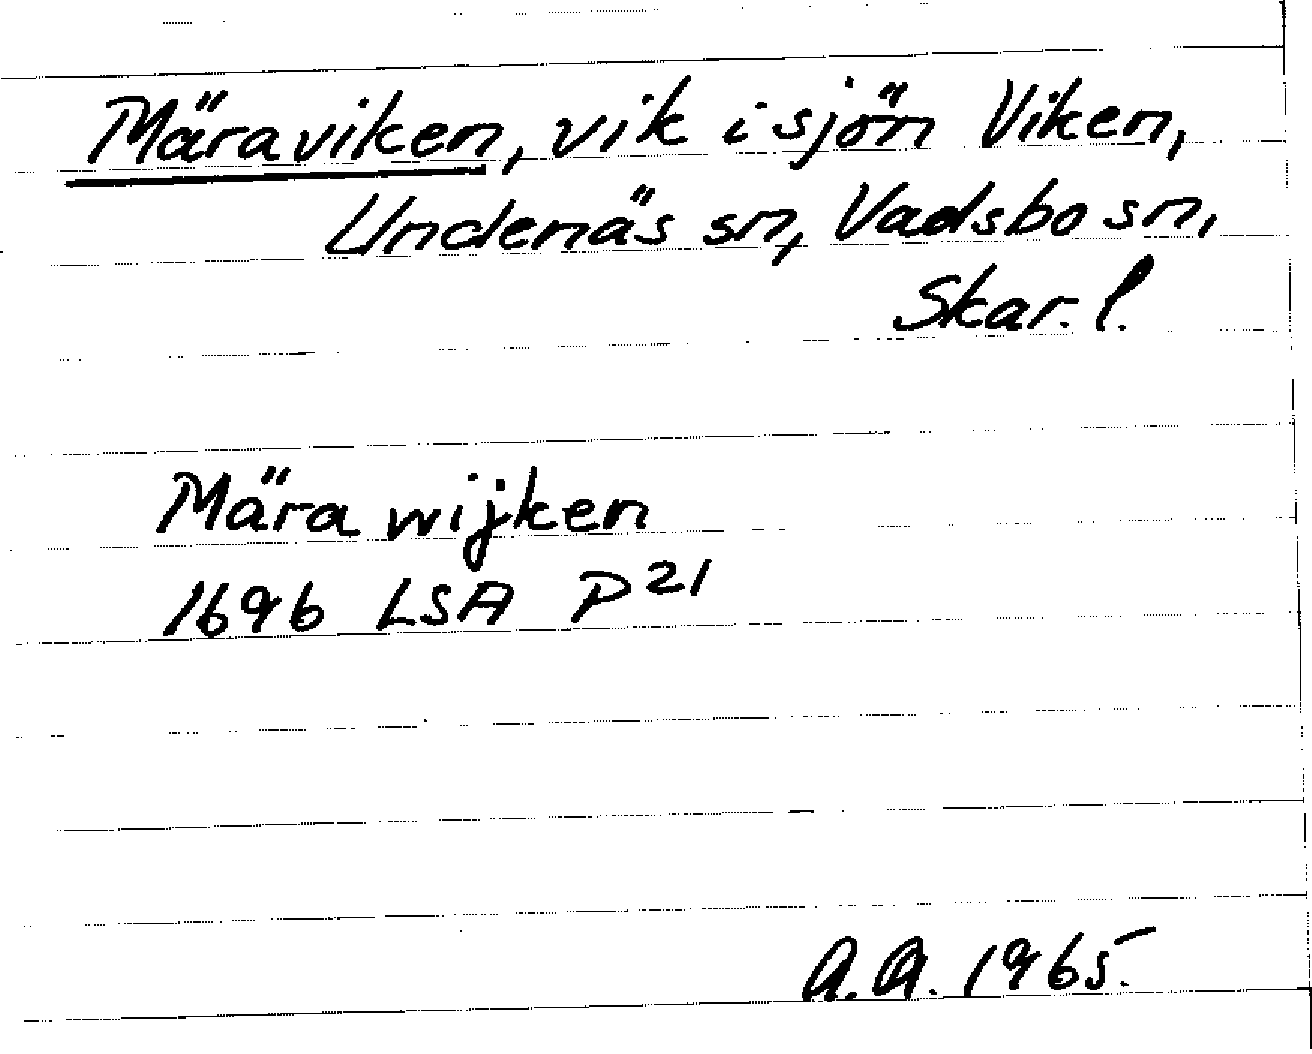 Märaviken, vik i sjön Viken,
Undenäs sn, Vadsbo sn,
Skar. l.
Mära wijken
1696 LSA P21
A.A. 1965.